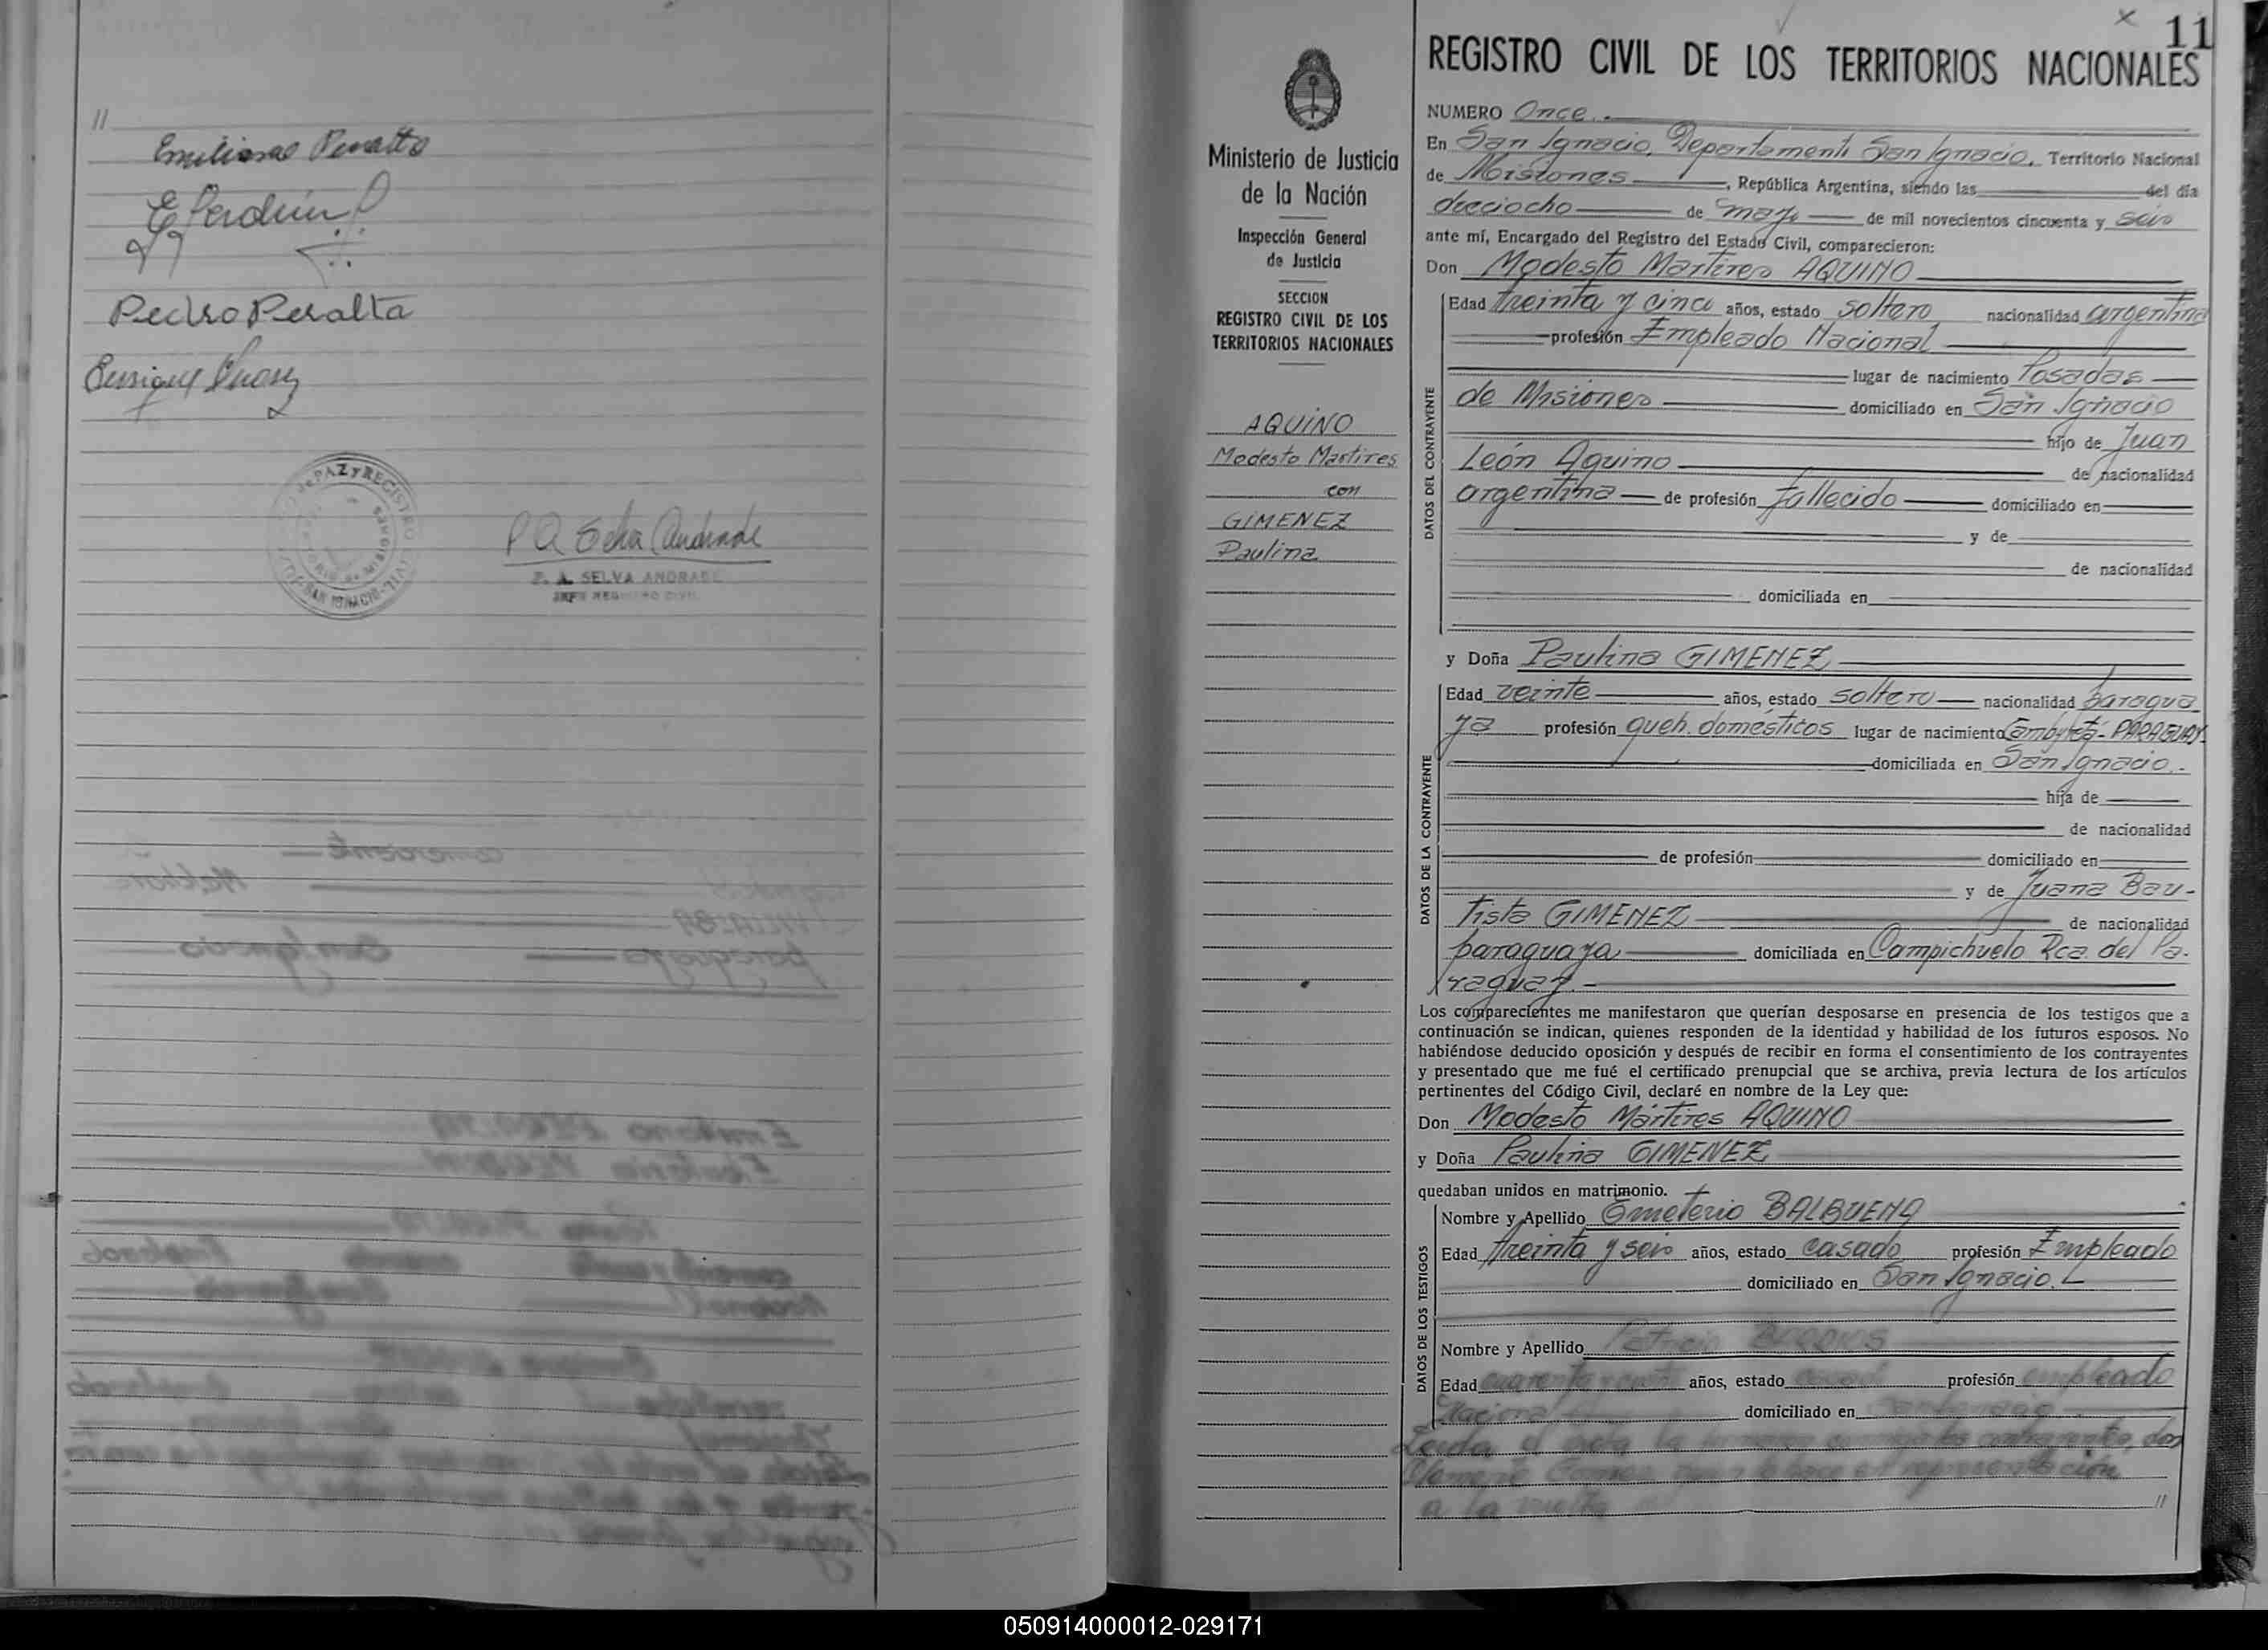 //
Emiliano Peralta
Pedro Peralta
Enrique
PAZ y REGISTRO CIVIL
SAN IGNACIO
P A Selva Andrade
P. A. SELVA ANDRADE
JEFE REGISTRO CIVIL
11
Ministerio de Justicia
de la Nación
Inspección General
de Justicia
SECCION
REGISTRO CIVIL DE LOS
TERRITORIOS NACIONALES
AQUINO
Modesto Martires
con
GIMENEZ
Paulina
REGISTRO CIVIL DE LOS TERRITORIOS NACIONALES
NUMERO Once.
En San Ignacio, Departamento San Ignacio, Territorio Nacional
de Misiones, República Argentina, siendo las del día
dieciocho de mayo de mil novecientos cincuenta y seis
ante mí, Encargado del Registro del Estado Civil, comparecieron:
Don Modesto Martires AQUINO
DATOS DEL CONTRAYENTE
Edad treinta y cinco años, estado soltero nacionalidad argentina
profesión Empleado Nacional
lugar de nacimiento Posadas
de Misiones domiciliado en San Ignacio
hijo de Juan
León Aquino de nacionalidad
argentina de profesión fallecido domiciliado en
y de
de nacionalidad
domiciliada en
y Doña Paulina GIMENEZ
DATOS DE LA CONTRAYENTE
Edad veinte años, estado soltero nacionalidad paragua
ya profesión queh. domésticos lugar de nacimiento PARAGUAY-
domiciliada en San Ignacio.-
hija de
de nacionalidad
de profesión domiciliado en
y de Juana Bau-
tista GIMENEZ de nacionalidad
paraguaya domiciliada en Campichuelo Rca. del Pa-
raguay.-
Los comparecientes me manifestaron que querían desposarse en presencia de los testigos que a
continuación se indican, quienes responden de la identidad y habilidad de los futuros esposos. No
habiéndose deducido oposición y después de recibir en forma el consentimiento de los contrayentes
y presentado que me fué el certificado prenupcial que se archiva, previa lectura de los artículos
pertinentes del Código Civil, declaré en nombre de la Ley que:
Don Modesto Mártires AQUINO
y Doña Paulina GIMENEZ
quedaban unidos en matrimonio.
DATOS DE LOS TESTIGOS
Nombre y Apellido Emeterio BALBUENA
Edad treinta y seis años, estado casado profesión Empleado
domiciliado en San Ignacio.
Nombre y Apellido
Edad cuarenta años, estado profesión empleado
Nacional domiciliado en
Leída el acta la
representación
a la vuelta //
050914000012-029171